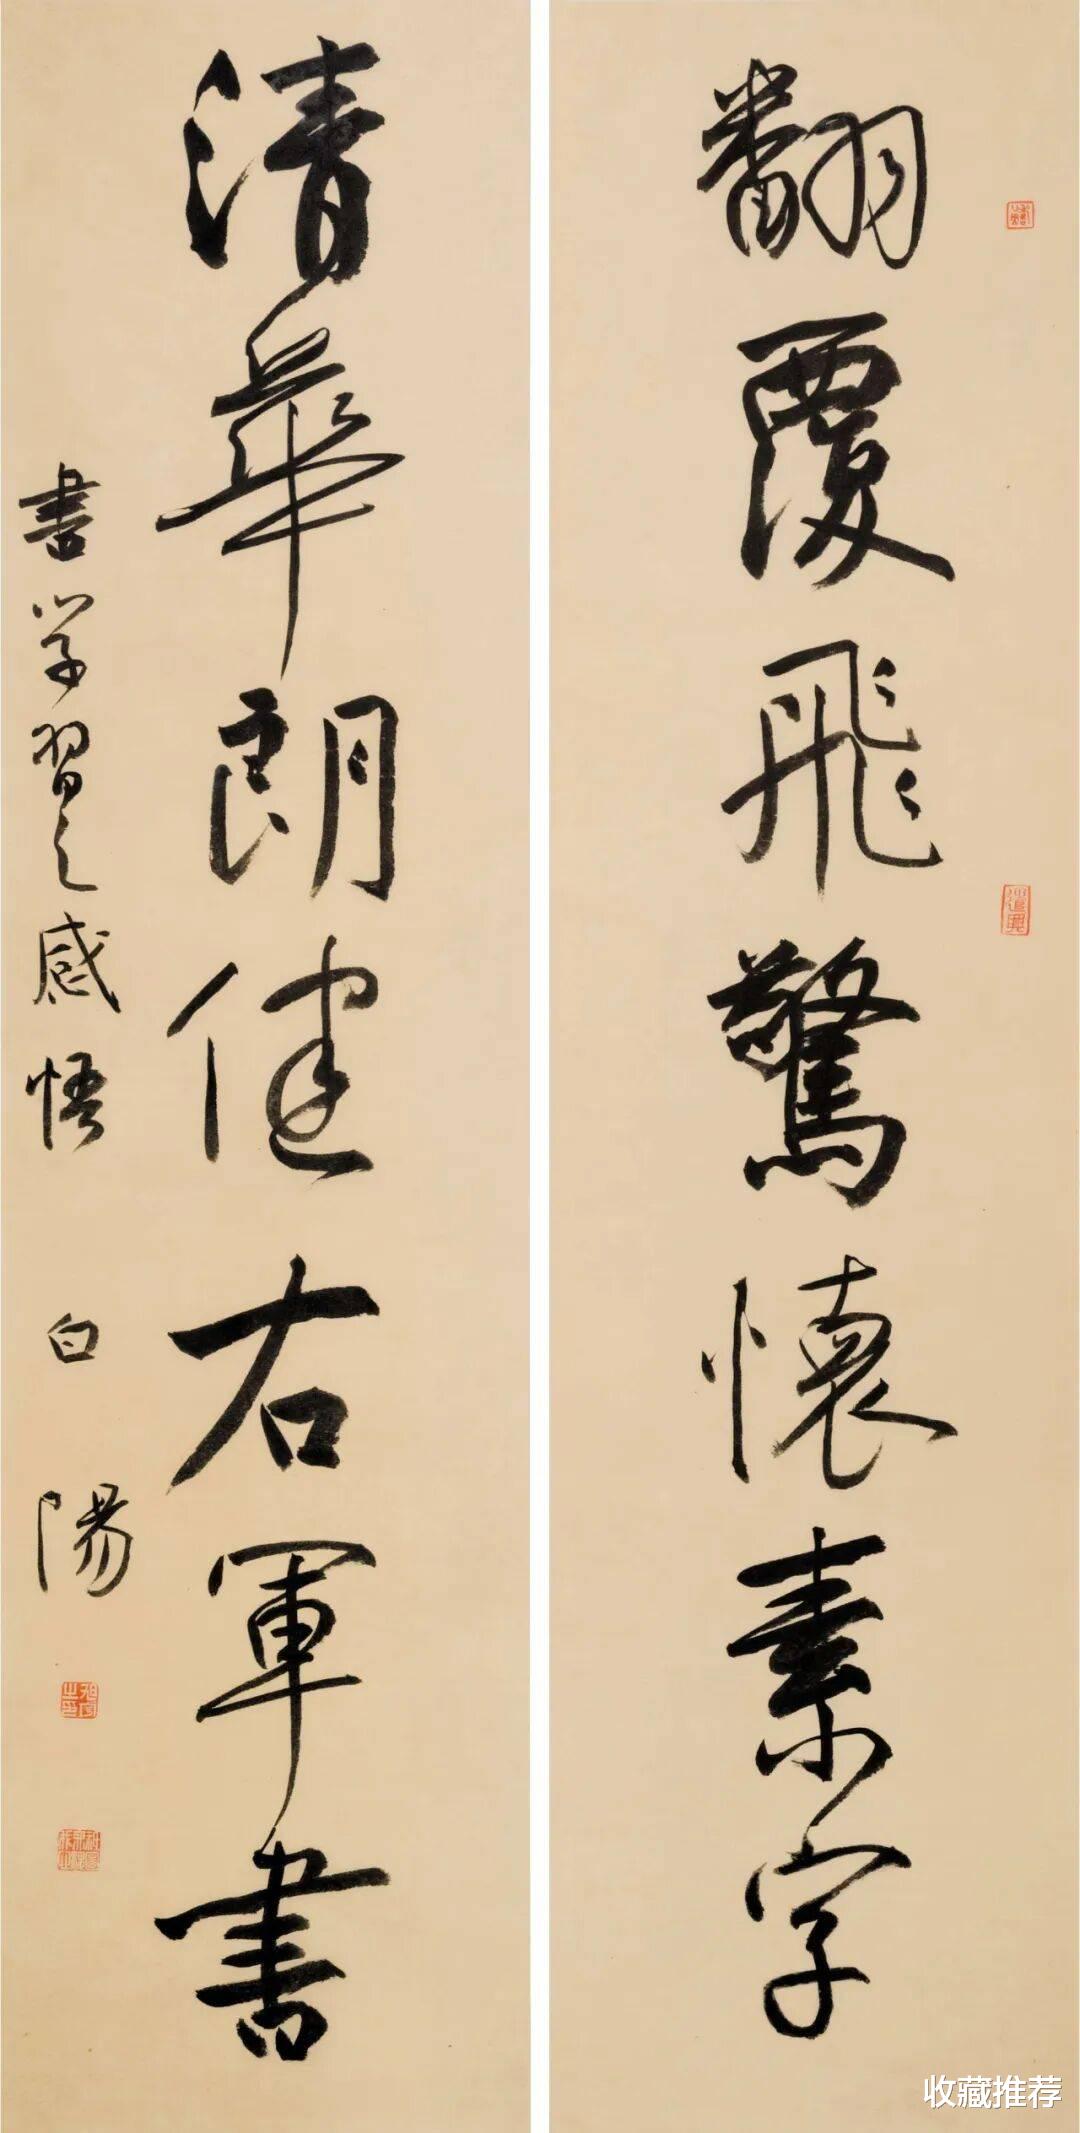 翻覆飛驚懷素字
清華朗健右軍書
書學習之感悟
白陽
收藏推荐